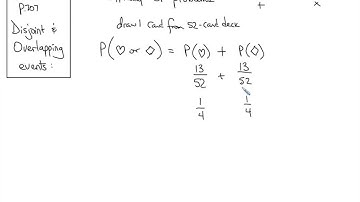 P.707
Disjoint &
Overlapping
events:
+ x
draw 1 card from 52-card deck
P(♡ or ◇) = P(♡) + P(◇)
13/52 + 13/52
1/4 1/4